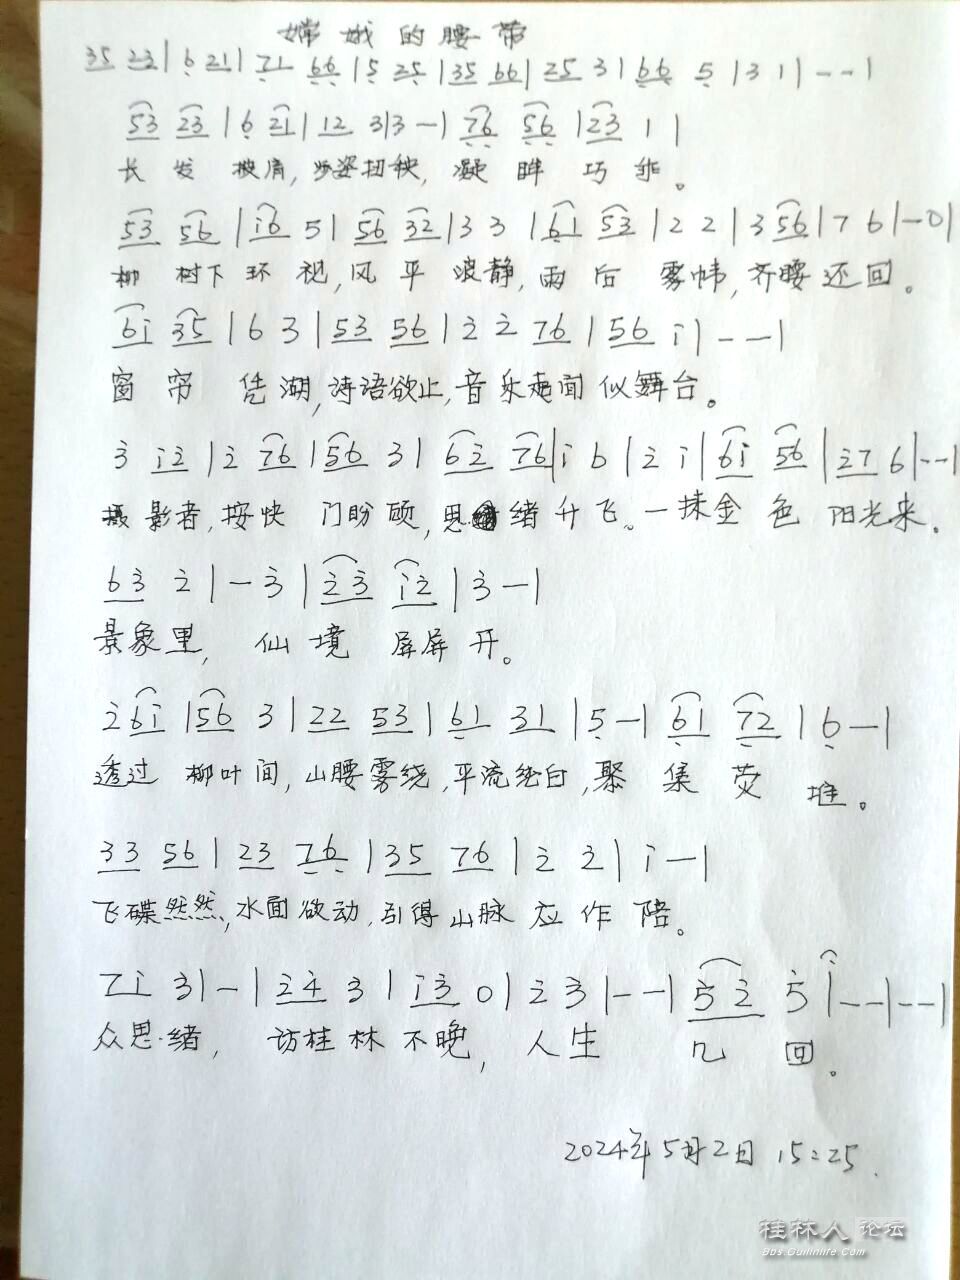 嫦娥的腰带
35 23 | 6 21 | 71 66 | 5 25 | 35 66 | 25 3 | 66 5 | 3 1 | - - |
53 23 | 6 21 | 12 3 | 3 - | 76 56 | 23 1 |
长发披肩,步姿扭秧,凝眸巧乖。
53 56 | i6 5 | 56 32 | 3 3 | 61 53 | 2 2 | 3 56 | 7 6 | - 0 |
柳树下环视,风平波静,雨后雾帏,齐腰还回。
6i 35 | 6 3 | 53 56 | 2 2 76 | 56 i | - - - |
窗帘凭湖,诗语欲止,音乐走闻似舞台。
3 i2 | 2 76 | 56 3 | 62 76 | i 6 | 2 i | 6i 56 | 27 6 | - - |
摄影者,按快门盼顾,思绪升飞。一抹金色阳光来。
63 2 | - 3 | 23 i2 | 3 - |
景象里,仙境屏屏开。
2 6i | 56 3 | 22 53 | 61 31 | 5 - | 61 72 | 6 - |
透过柳叶间,山腰雾绕,平流纯白,聚集荧堆。
33 56 | 23 76 | 35 76 | 2 2 | i - |
飞碟然然,水面欲动,引得山脉应作陪。
7i 3 | - | 24 3 | i3 0 | 2 3 | - - | 52 5 i | - - | - - |
众思绪,访桂林不晚,人生几回。
2024年5月2日 15:25.
桂林人论坛
Bbs.Guilinlife.Com